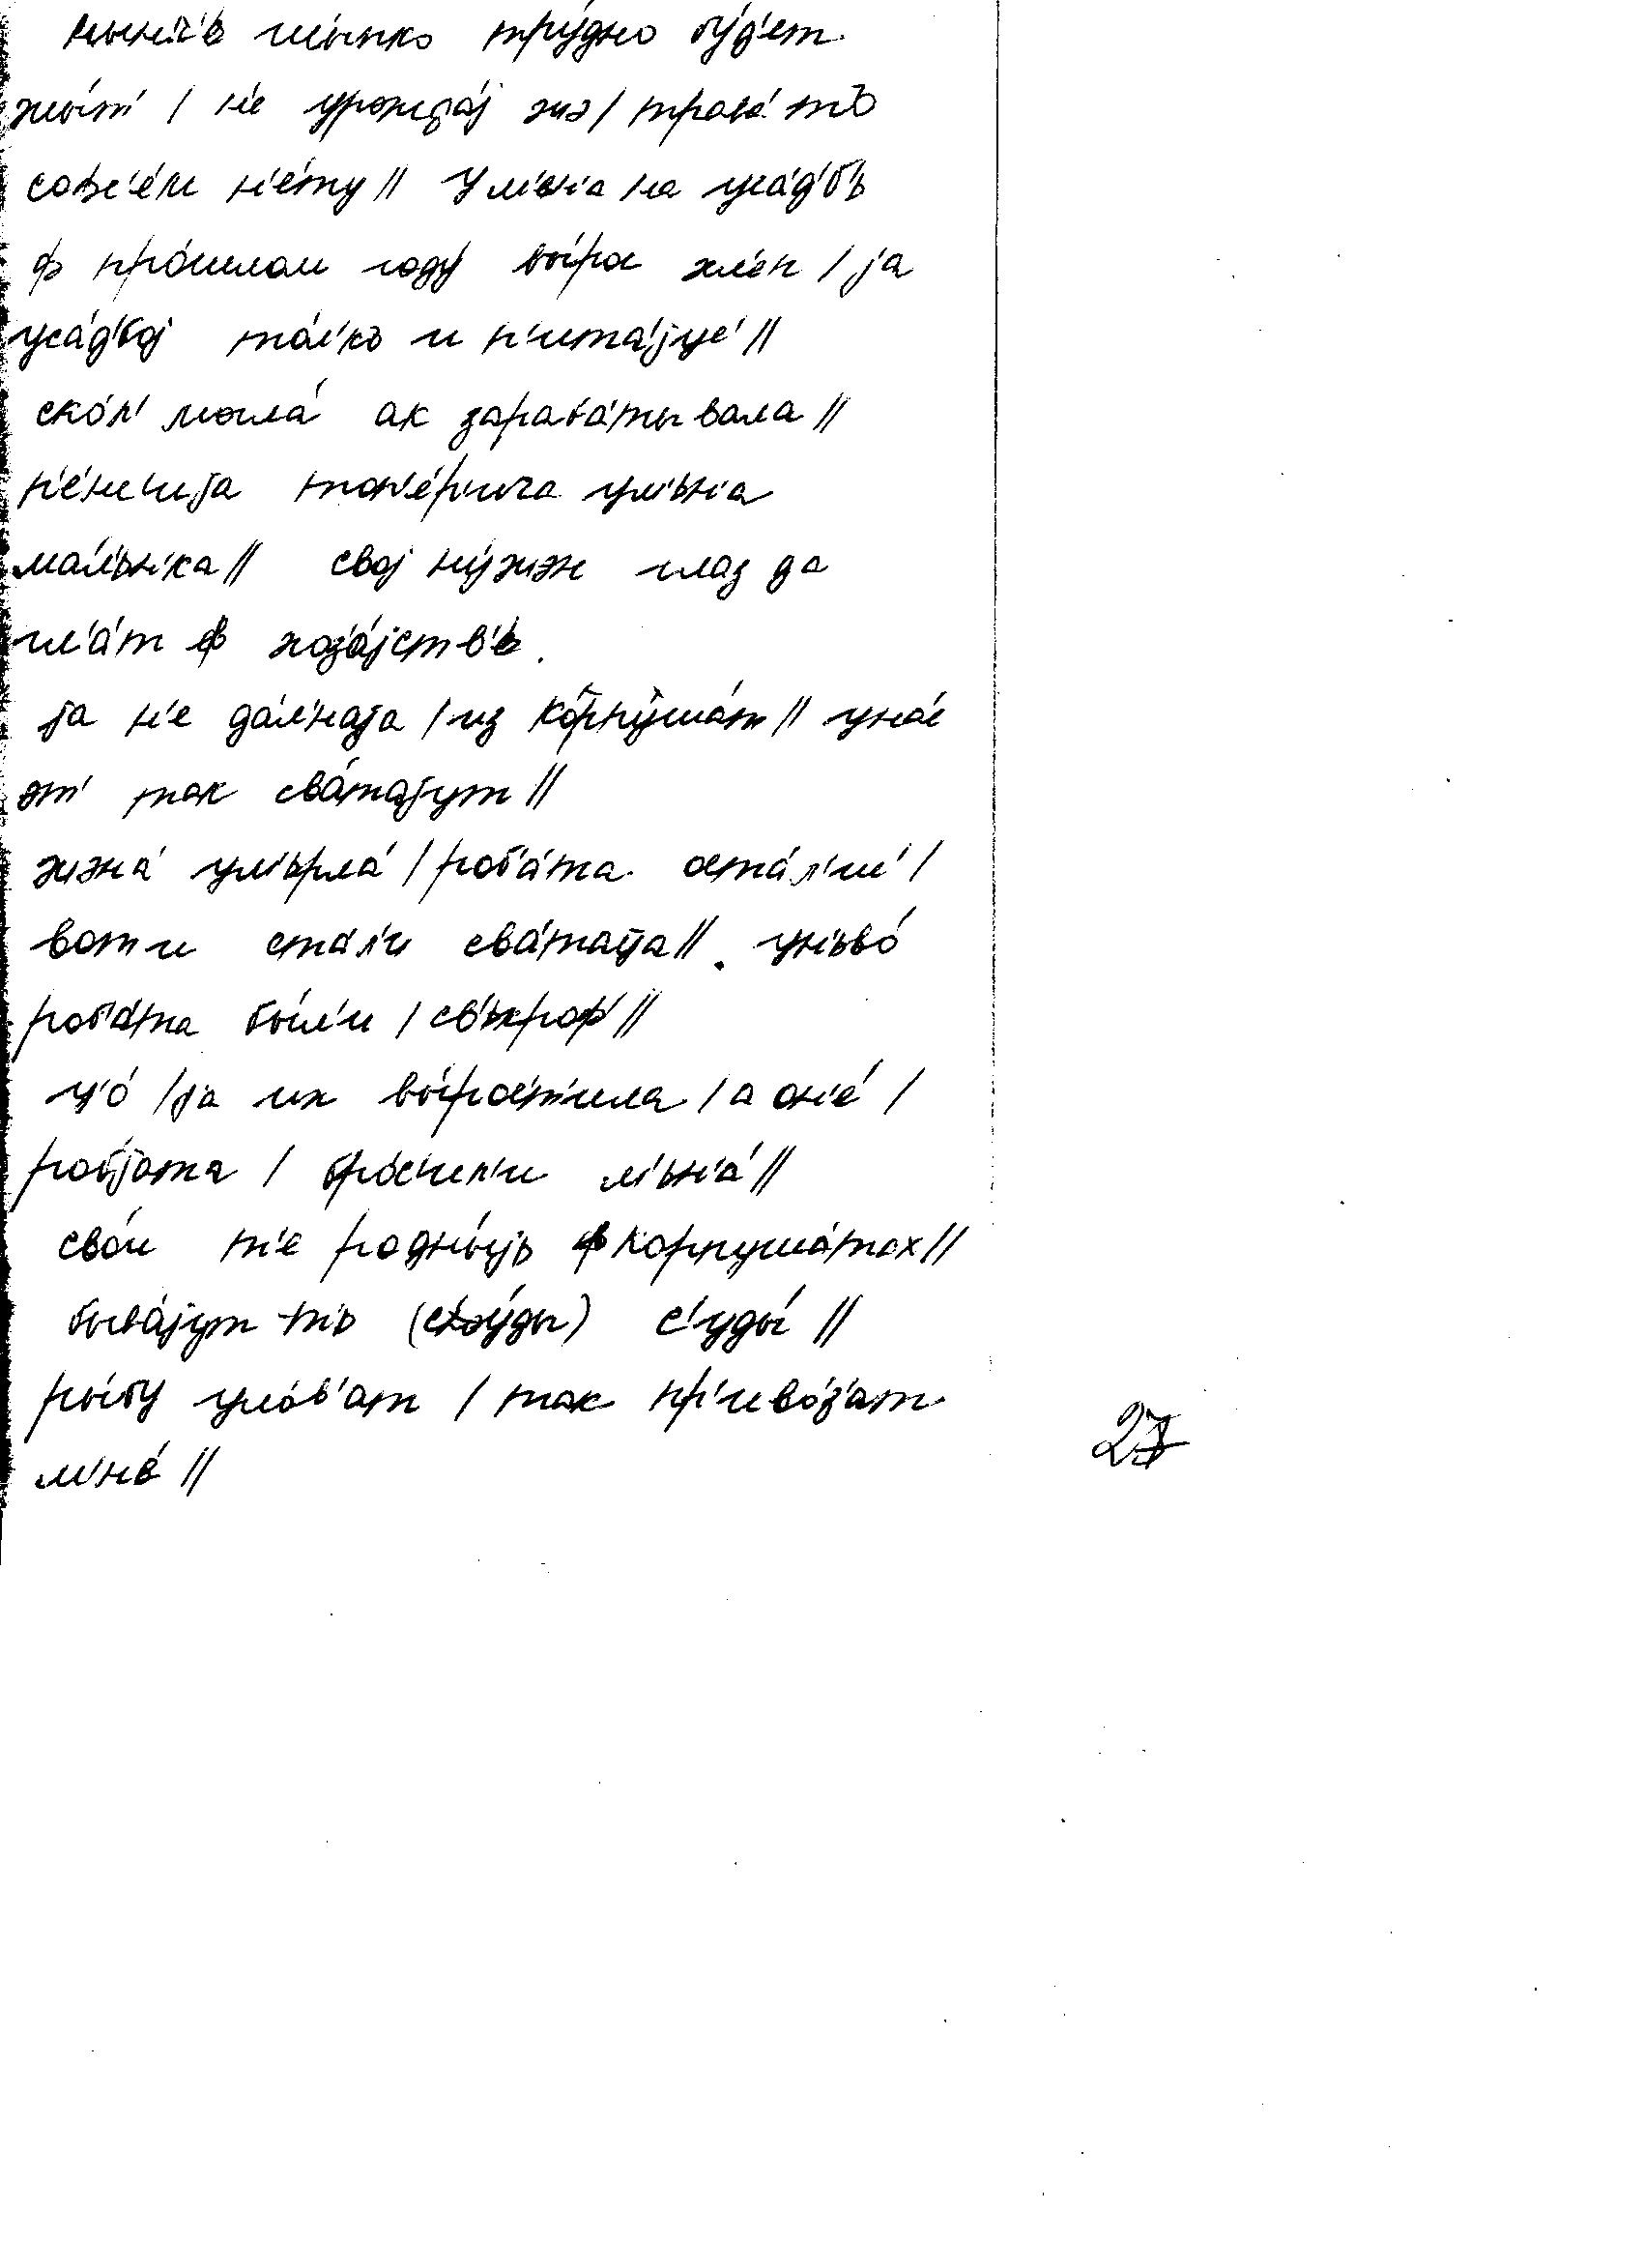 нын'г'ь шы́пко тру́дно бу́д'ет
жыт' / н'е урожда́j жэ / трава́ тъ
совс'е́м н'е́ту // У м'ьн'а на уса́д'бь
ф про́шлом году вы́рос хл'еп / jа
уса́д'боj то́л'ко и п'ита́jус' //
ско́л' могла́ ак зараба́тывала //
п'е́нс'иjа топ'е́р'ича у м'ьн'а
ма́л'ьн'ка // своj ну́жэн глаз да
гл'ат ф хоз'а́jств'ь.
jа н'е да́л'наjа / из Корпуша́т // у на́с
эт' так сва́таjут //
жэна́ ум'ьрла́ / роб'а́та оста́л'ис' /
вот и ста́л'и сва́таца // у н'ьво́
роб'а́та бы́л'и / св'ькро́ф' //
ц'о́ / jа их вы́рост'ила / а он'е́ /
робjата / бро́с'ил'и м'ьн'а́ //
сво́и т'е родны́jь ф Корпуша́тах //
быва́jут тъ (сюу́ды) с'уды́ //
ры́бу уло́в'ат / так пр'иво́з'ат
м'н'е́ //
27